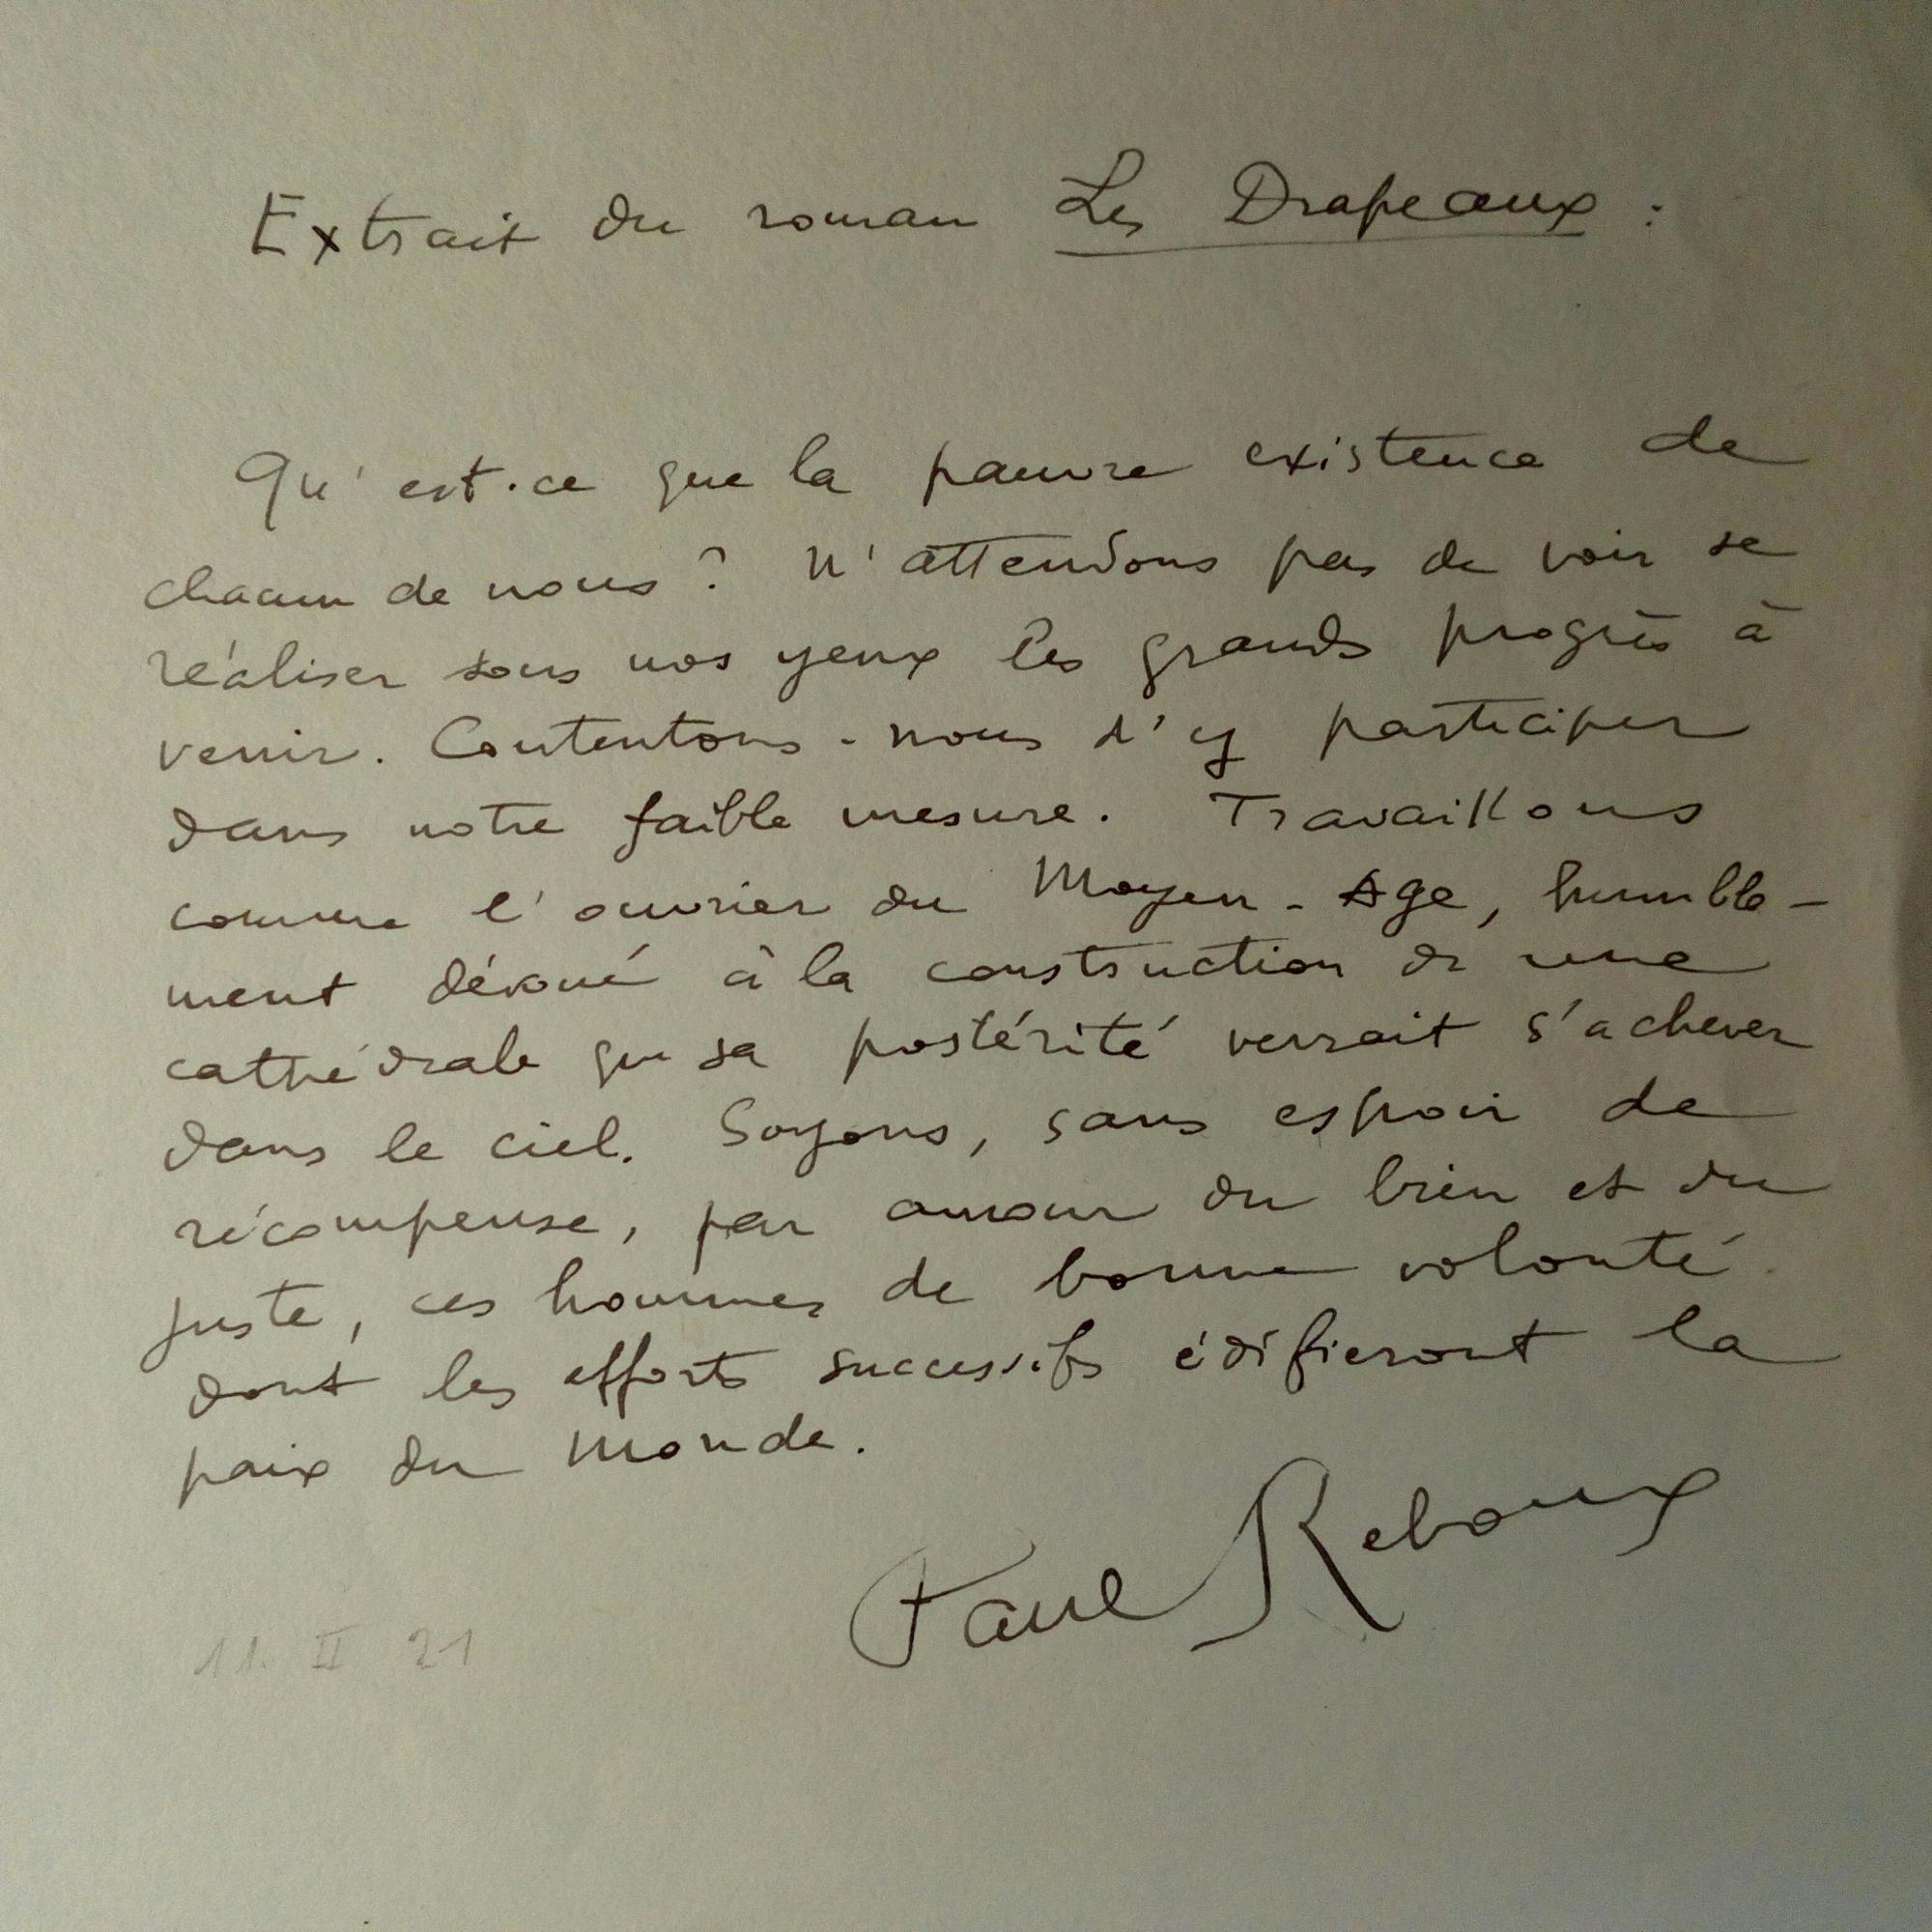 Extrait du roman Les Drapeaux :
Qu'est-ce que la pauvre existence de
chacun de nous ? N'attendons pas de voir se
réaliser sous nos yeux les grands progrès à
venir. Contentons-nous d'y participer
dans notre faible mesure. Travaillons
comme l'ouvrier du Moyen-Age, humble-
ment dévoué à la construction de une
cathédrale que sa postérité verrait s'achever
dans le ciel. Soyons, sans espoir de
récompense, par amour du bien et du
juste, ces hommes de bonne volonté
dont les efforts successifs édifieront la
paix du monde.
Paul Reboux
11. II 21